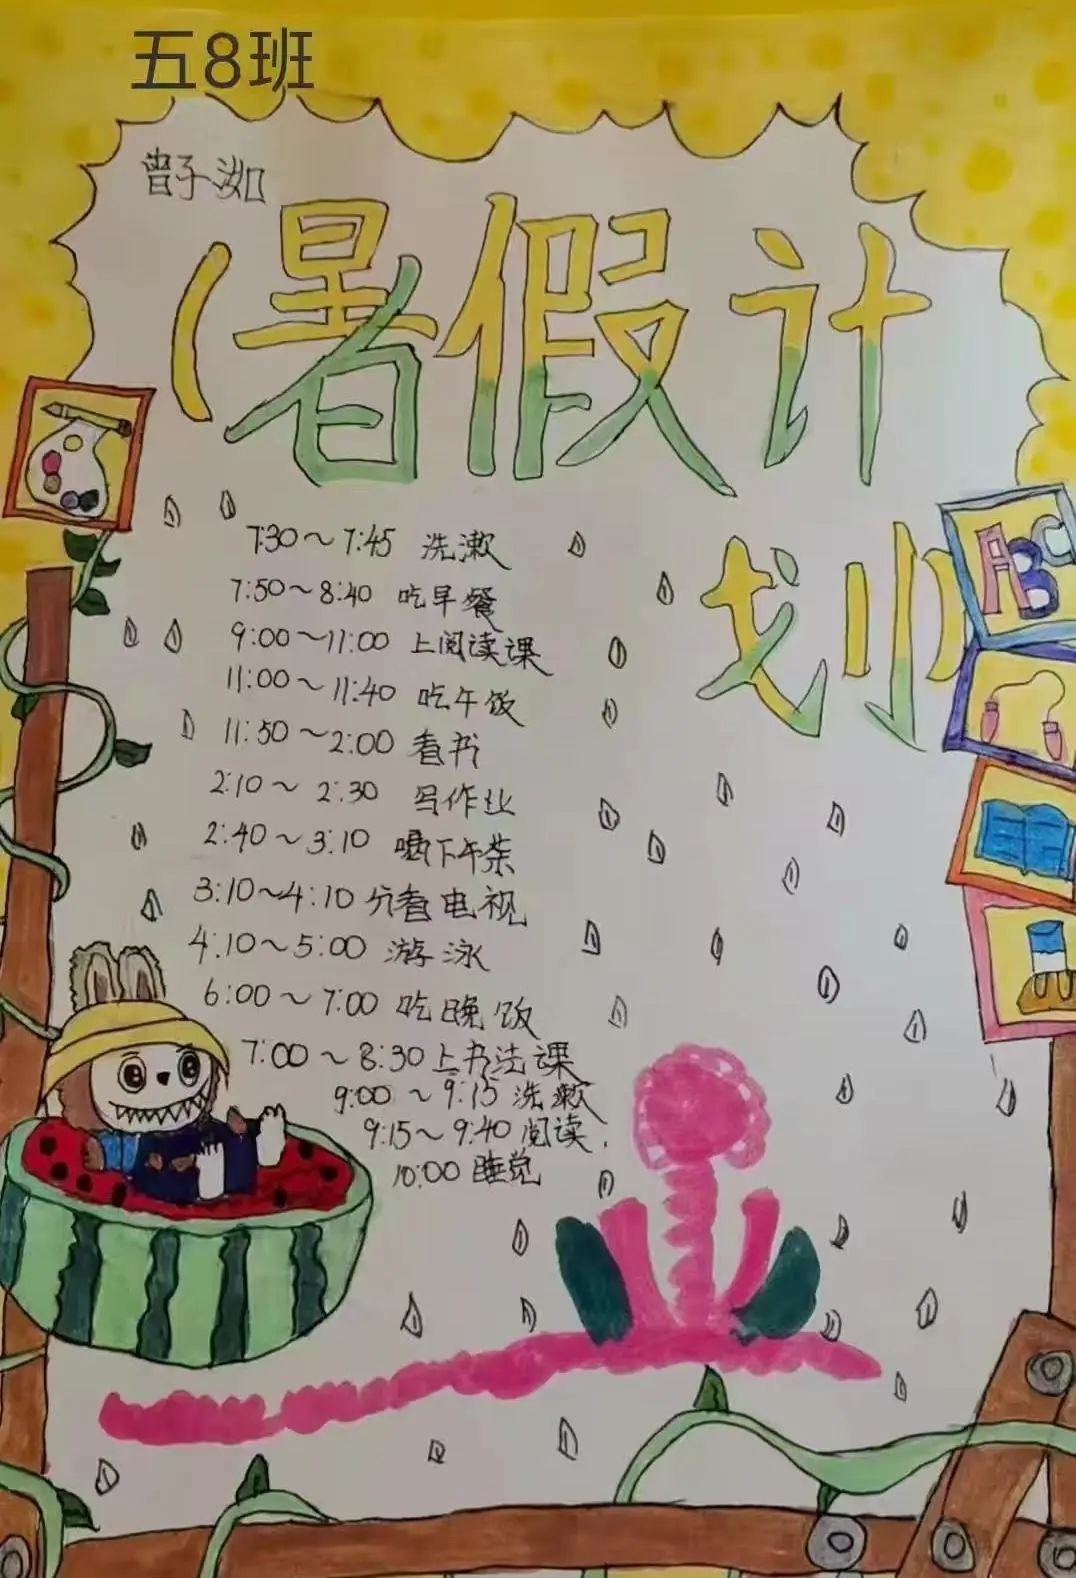 五8班
曾子洳
(暑假计
划)
ABC
7:30～7:45 洗漱
7:50～8:40 吃早餐
9:00～11:00 上阅读课
11:00～11:40 吃午饭
11:50～2:00 看书
2:10～2:30 写作业
2:40～3:10 喝下午茶
3:10～4:10 看电视
4:10～5:00 游泳
6:00～7:00 吃晚饭
7:00～8:30 上书法课
9:00～9:15 洗漱
9:15～9:40 阅读.
10:00 睡觉